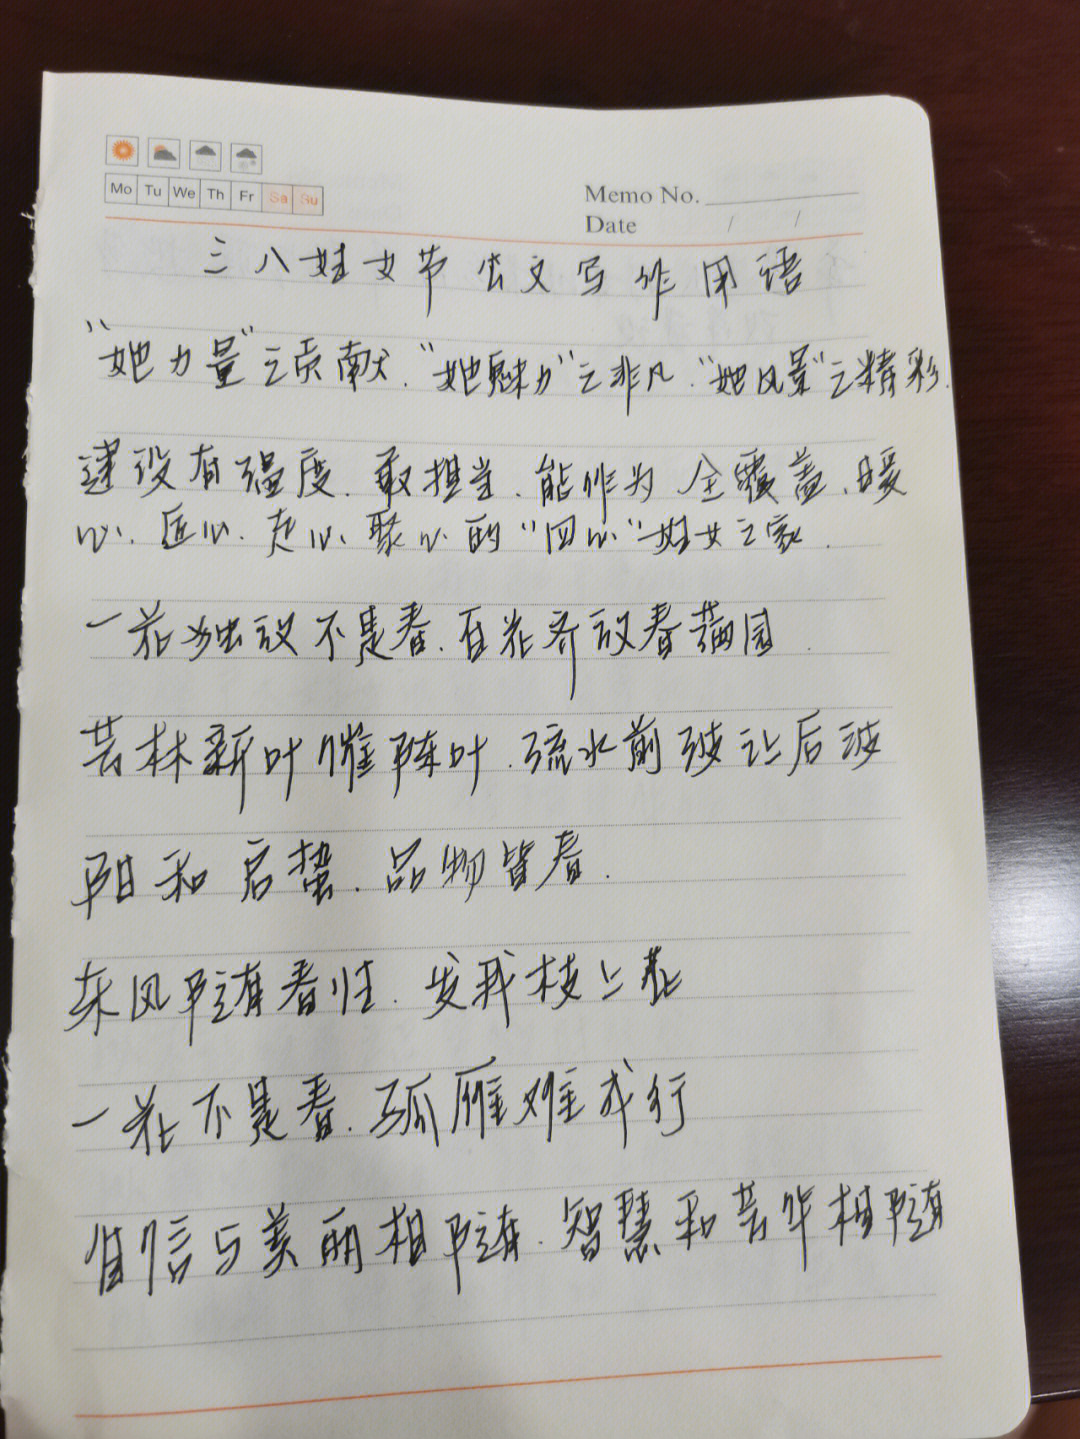 Mo Tu We Th Fr Sa Su
Memo No.
Date / /
三八妇女节公文写作用语
"她力量"之贡献、"她魅力"之非凡、"她风景"之精彩.
建设有强度、敢担当、能作为 全覆盖、暖
心、匠心、走心、聚心的"四心"妇女之家.
一花独放不是春、百花齐放春满园.
芳林新叶催陈叶、流水前波让后波
阳和启蛰、品物皆春.
东风随春归、发我枝上花
一花不是春、孤雁难成行
自信与美丽相随、智慧和芳华相随